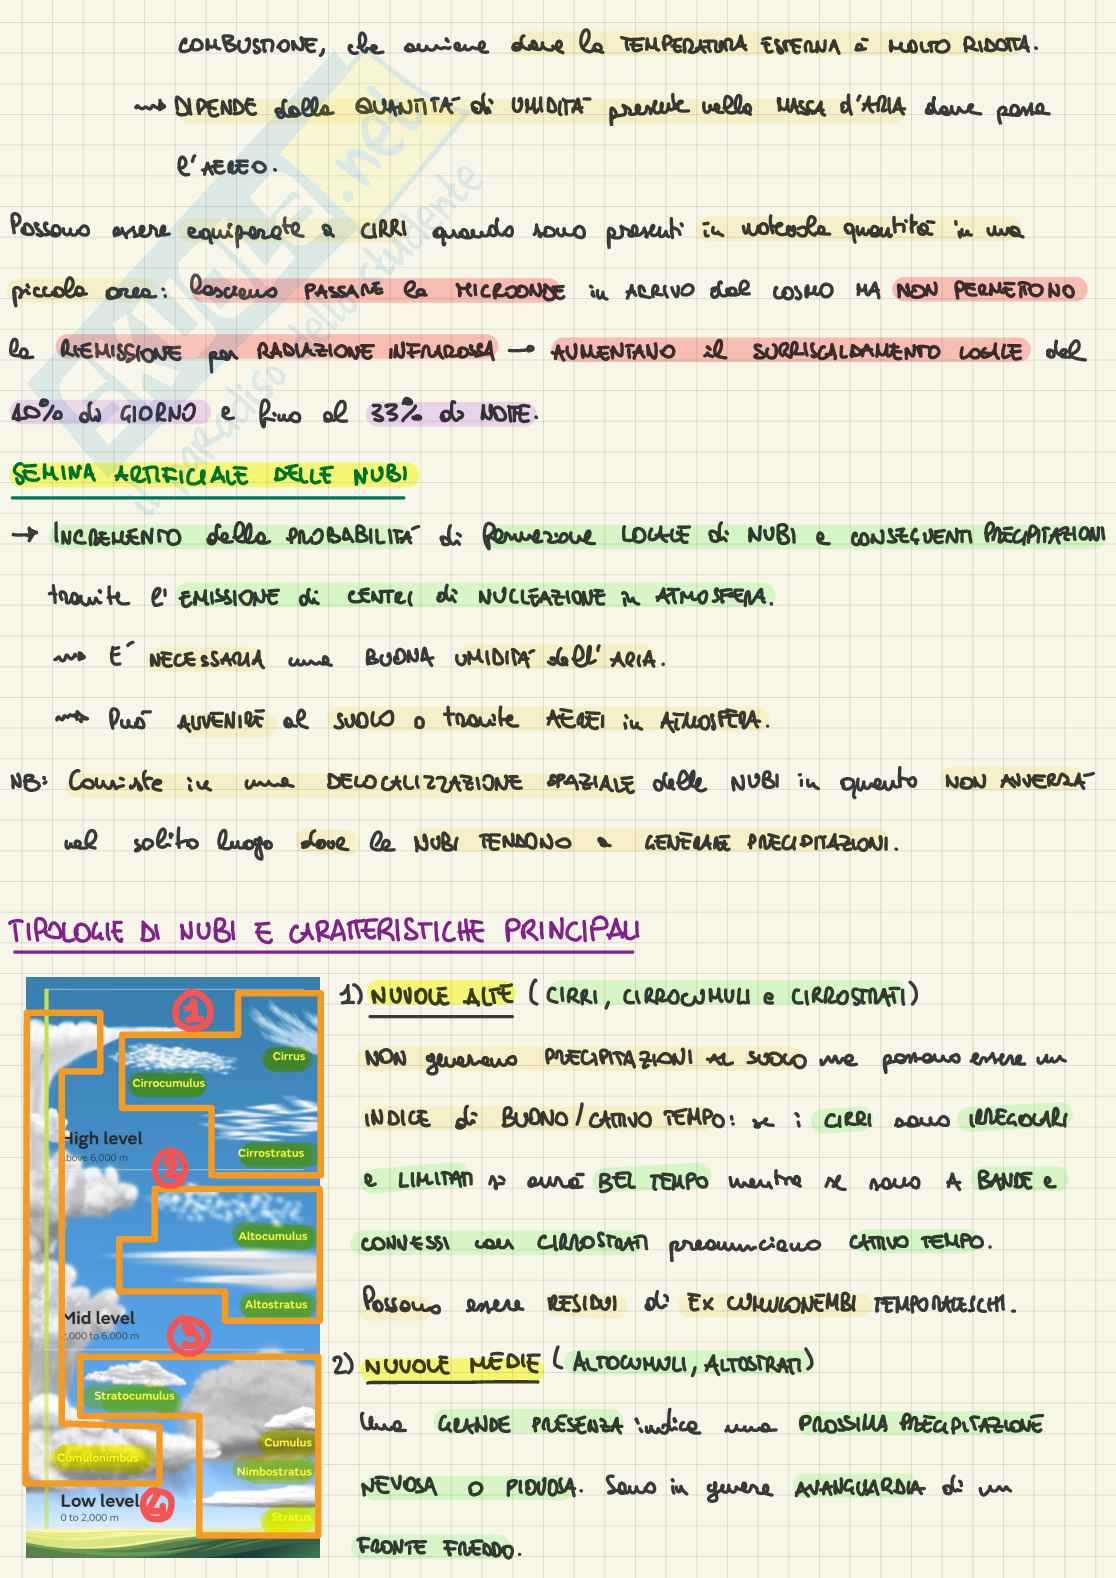 COMBUSTIONE, che avviene dove la TEMPERATURA ESTERNA è MOLTO RIDOTTA.
⟿ DIPENDE dalla QUANTITÀ di UMIDITÀ presente nella MASSA d'ARIA dove passa
l'AEREO.
Possono essere equiparate a CIRRI quando sono presenti in notevole quantità in una
piccola area: lasciano PASSARE le MICROONDE in ARRIVO dal COSMO MA NON PERMETTONO
la RIEMISSIONE per RADIAZIONE INFRAROSSA → AUMENTANO il SURRISCALDAMENTO LOCALE del
10% di GIORNO e fino al 33% di NOTTE.
SEMINA ARTIFICIALE DELLE NUBI
→ INCREMENTO della PROBABILITÀ di formazione LOCALE di NUBI e CONSEGUENTI PRECIPITAZIONI
tramite l'EMISSIONE di CENTRI di NUCLEAZIONE in ATMOSFERA.
⟿ È NECESSARIA una BUONA UMIDITÀ dell'ARIA.
⟿ Può AVVENIRE al SUOLO o tramite AEREI in ATMOSFERA.
NB: Consiste in una DELOCALIZZAZIONE SPAZIALE delle NUBI in quanto NON AVVERRÀ
nel solito luogo dove le NUBI TENDONO a GENERARE PRECIPITAZIONI.
TIPOLOGIE DI NUBI E CARATTERISTICHE PRINCIPALI
1) NUVOLE ALTE (CIRRI, CIRROCUMULI e CIRROSTRATI)
NON generano PRECIPITAZIONI al SUOLO ma possono essere un
INDICE di BUONO/CATTIVO TEMPO: se i CIRRI sono IRREGOLARI
e LIMITATI si avrà BEL TEMPO mentre se sono A BANDE e
CONNESSI con CIRROSTRATI preannunciano CATTIVO TEMPO.
Possono essere RESIDUI di EX CUMULONEMBI TEMPORALESCHI.
2) NUVOLE MEDIE (ALTOCUMULI, ALTOSTRATI)
Una GRANDE PRESENZA indica una PROSSIMA PRECIPITAZIONE
NEVOSA O PIOVOSA. Sono in genere AVANGUARDIA di un
FRONTE FREDDO.
1
Cirrus
Cirrocumulus
High level
above 6,000 m
Cirrostratus
2
Altocumulus
Altostratus
Mid level
2,000 to 6,000 m
3
Stratocumulus
Cumulus
Cumulonimbus
Nimbostratus
Low level
4
0 to 2,000 m
Stratus
SKUOLA.net
il paradiso dello studente